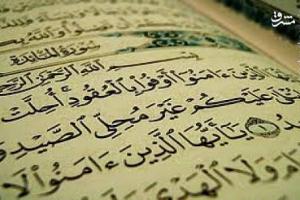 مشرق
سُورَةُ المَائِدَة
بِسْمِ ٱللَّهِ ٱلرَّحْمَٰنِ ٱلرَّحِيمِ
يَٰٓأَيُّهَا ٱلَّذِينَ ءَامَنُوٓا۟ أَوْفُوا۟ بِٱلْعُقُودِ أُحِلَّتْ
عَلَيْكُمْ غَيْرَ مُحِلِّى ٱلصَّيْدِ وَ
١ يَٰٓأَيُّهَا ٱلَّذِينَ ءَامَنُوا۟ لَا
وَلَا ٱلْهَدْىَ وَلَا